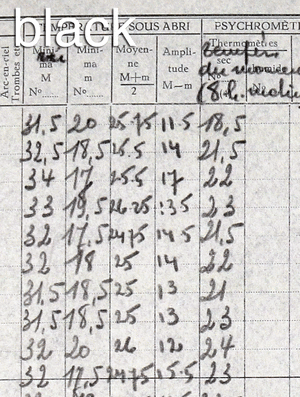 black
TEMPÉRATURE SOUS ABRI PSYCHROMÈT
Arc-en-ciel Trombes et Mini- Mini- Moyen- Ampli- Thermomètres
ma ma ne tude sec
M m M+m M—m du
N° N° 2 N° (8 h.
31,5 20 25.75 11.5 18,5
32,5 18,5 25.5 14 21,5
34 17 25.5 17 22
33 19,5 26.25 13.5 23
32 17,5 24.75 14.5 21,5
32 18 25 14 22
31,5 18,5 25 13 21
31,5 18,5 25 13 23
32 20 26 12 24
32 17,5 24.75 15.5 23